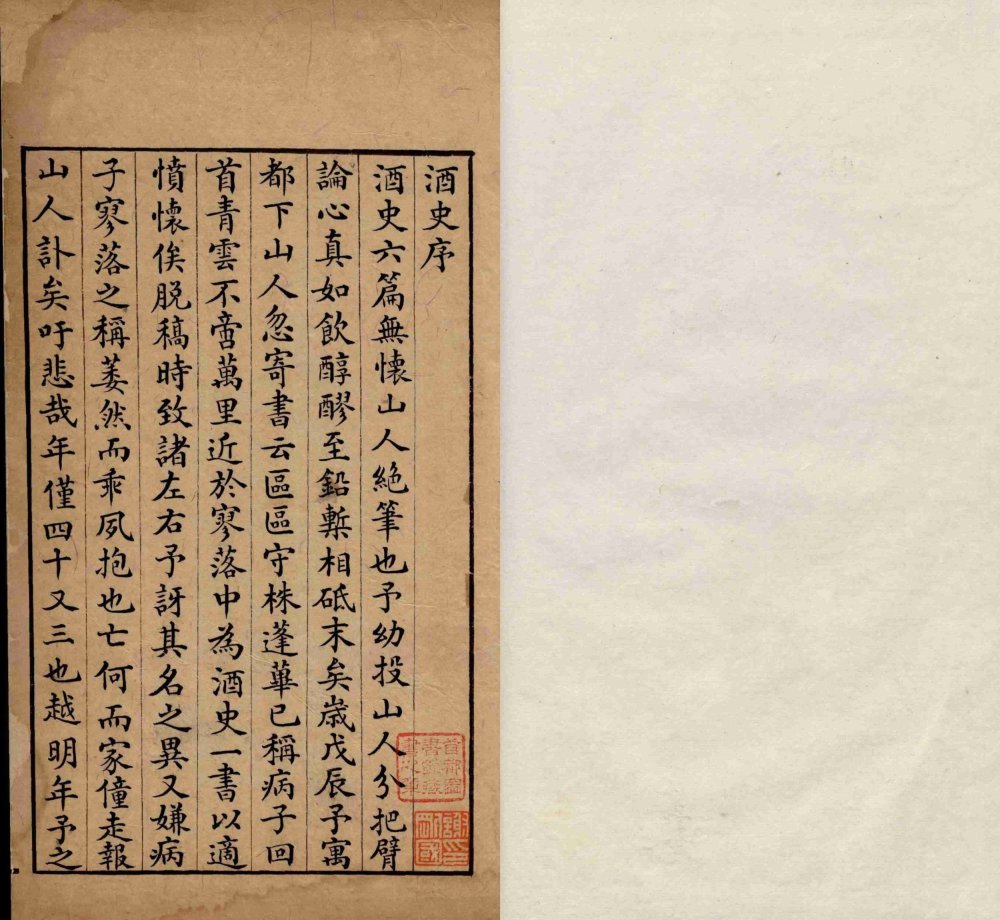 酒史序
酒史六篇無懷山人絕筆也予幼投山人分把臂
論心真如飲醇醪至鉛槧相砥末矣歲戊辰予寓
都下山人忽寄書云區區守株蓬蓽已稱病子回
首青雲不啻萬里近於寥落中為酒史一書以適
憤懷俟脫稿時致諸左右予訝其名之異又嫌病
子寥落之稱萎然而乖夙抱也亡何而家僮走報
山人訃矣吁悲哉年僅四十又三也越明年予之
首都圖
書館藏
書之章
謝剛國印